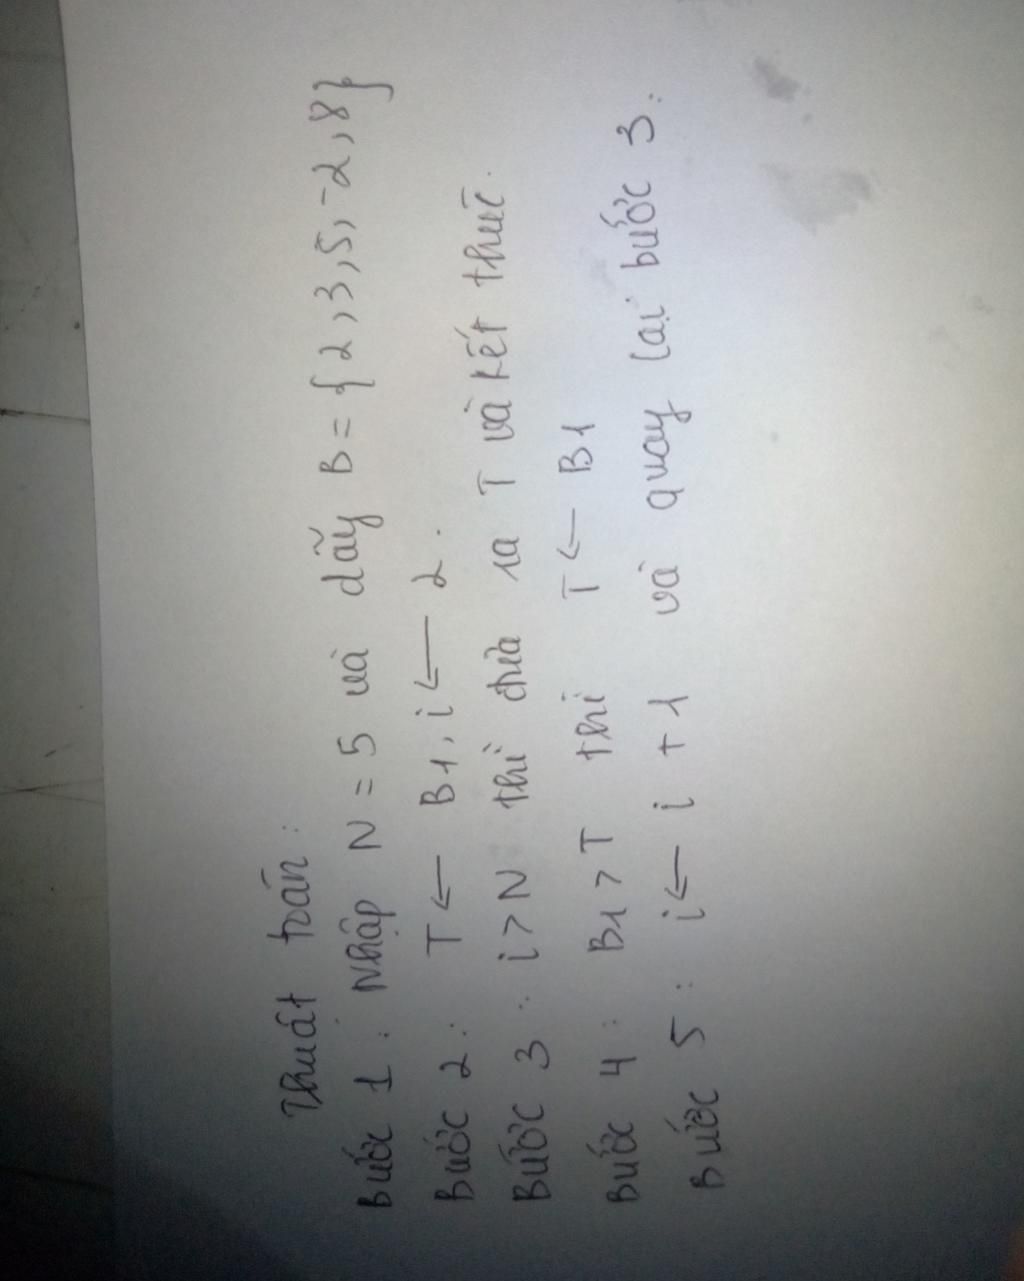 Thuật toán:
Bước 1: Nhập N = 5 và dãy B = {2, 3, 5, -2, 8}
Bước 2: T ← B1, i ← 2.
Bước 3: i > N thì đưa ra T và kết thúc.
Bước 4: B1 > T thì T ← B1
Bước 5: i ← i + 1 và quay lại bước 3.